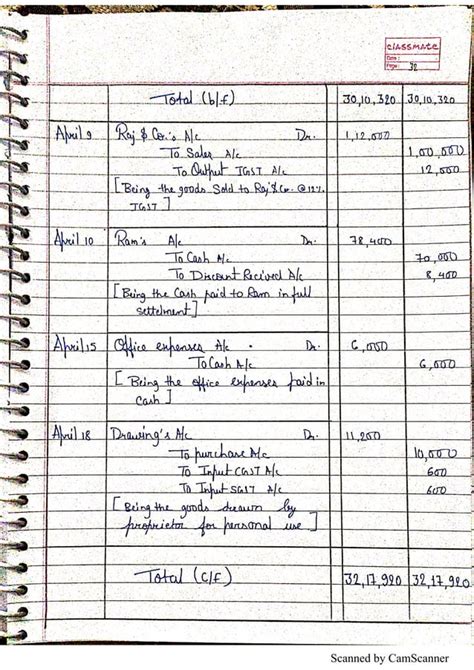 classmate
Date :
Page : 32
Total (b/f) 30,10,320 30,10,320
April 9 Raj & Co.'s A/c Dr. 1,12,000
To Sales A/c 1,00,000
To Output IGST A/c 12,000
[Being the goods Sold to Raj & Co. @12%
IGST]
April 10 Ram's A/c Dr. 78,400
To Cash A/c 70,000
To Discount Received A/c 8,400
[Being the Cash paid to Ram in full
settelment]
April 15 Office expenses A/c Dr. 6,000
To Cash A/c 6,000
[Being the office expenses paid in
Cash]
April 18 Drawing's A/c Dr. 11,200
To purchase A/c 10,000
To Input CGST A/c 600
To Input SGST A/c 600
[Being the goods drawn by
proprietor for personal use]
Total (C/F) 32,17,920 32,17,920
Scanned by CamScanner